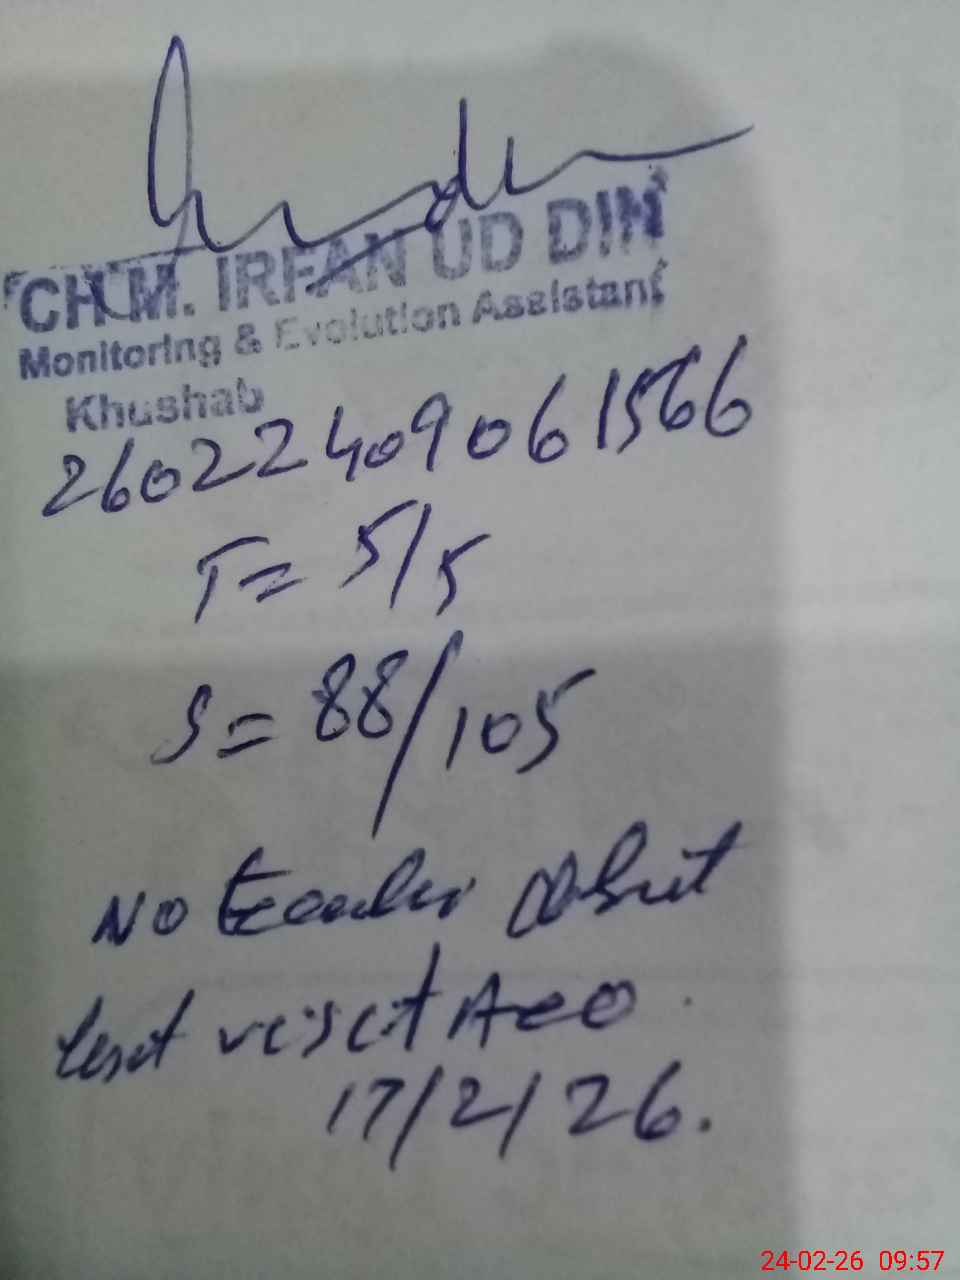 CH.M. IRFAN UD DIN
Monitoring & Evolution Assistant
Khushab
26022409061566
T = 5/5
S = 88/105
NO teacher absent
last visit AEO
17/2/26.
24-02-26 09:57